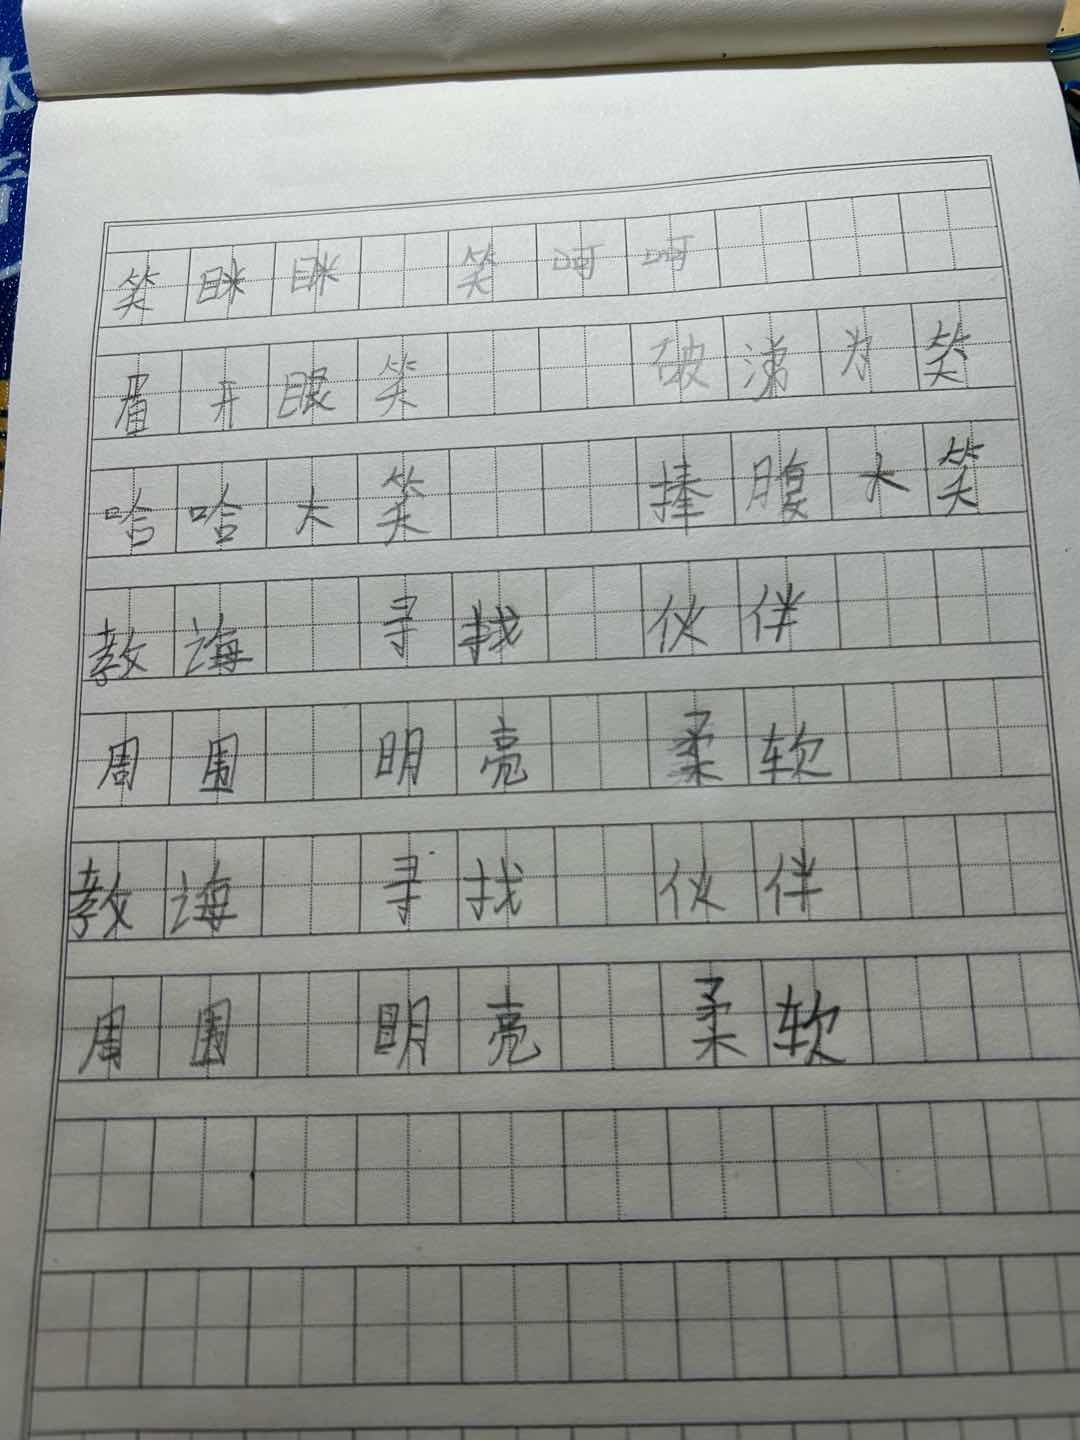 笑眯眯 笑呵呵
眉开眼笑 破涕为笑
哈哈大笑 捧腹大笑
教诲 寻找 伙伴
周围 明亮 柔软
教诲 寻找 伙伴
周围 明亮 柔软